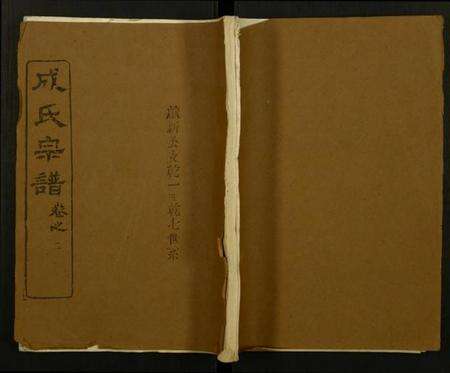 成氏宗譜 卷之二
新公支乾一至乾七世系